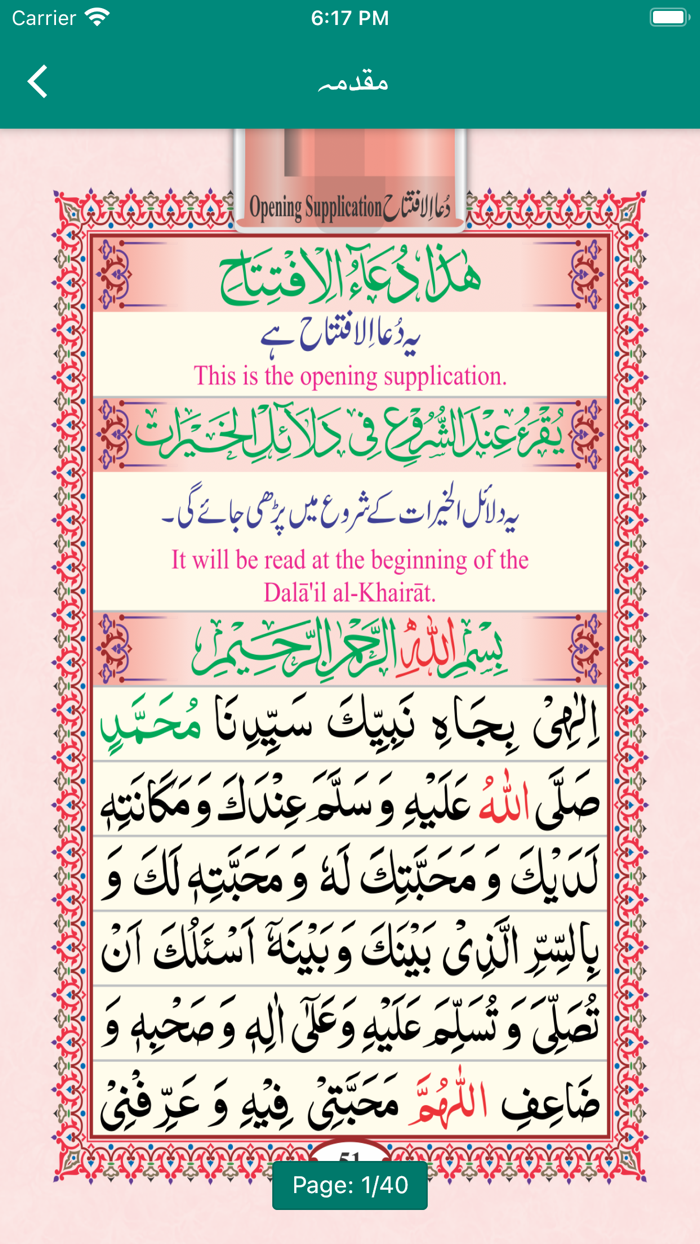 Carrier
6:17 PM
مقدمہ
Opening Supplication دُعاءِ الافتتاح
هٰذَا دُعَآءُ الْاِفْتِتَاحِ
یہ دُعاءِ الافتتاح ہے
This is the opening supplication.
يُقْرَءُ عِنْدَ الشُّرُوْعِ فِىْ دَلَآئِلِ الْخَيْرَاتِ
یہ دلائل الخیرات کے شروع میں پڑھی جائے گی۔
It will be read at the beginning of the
Dalā'il al-Khairāt.
بِسْمِ اللهِ الرَّحْمٰنِ الرَّحِيْمِ
اِلٰهِىْ بِجَاهِ نَبِيِّكَ سَيِّدِنَا مُحَمَّدٍ
صَلَّى اللهُ عَلَيْهِ وَسَلَّمَ عِنْدَكَ وَمَكَانَتِهٖ
لَدَيْكَ وَ مَحَبَّتِكَ لَهٗ وَ مَحَبَّتِهٖ لَكَ وَ
بِالسِّرِّ الَّذِىْ بَيْنَكَ وَبَيْنَهٗٓ اَسْئَلُكَ اَنْ
تُصَلِّىَ وَ تُسَلِّمَ عَلَيْهِ وَعَلٰٓى اٰلِهٖ وَصَحْبِهٖ وَ
ضَاعِفِ اللّٰهُمَّ مَحَبَّتِىْ فِيْهِ وَ عَرِّفْنِىْ
51
Page: 1/40